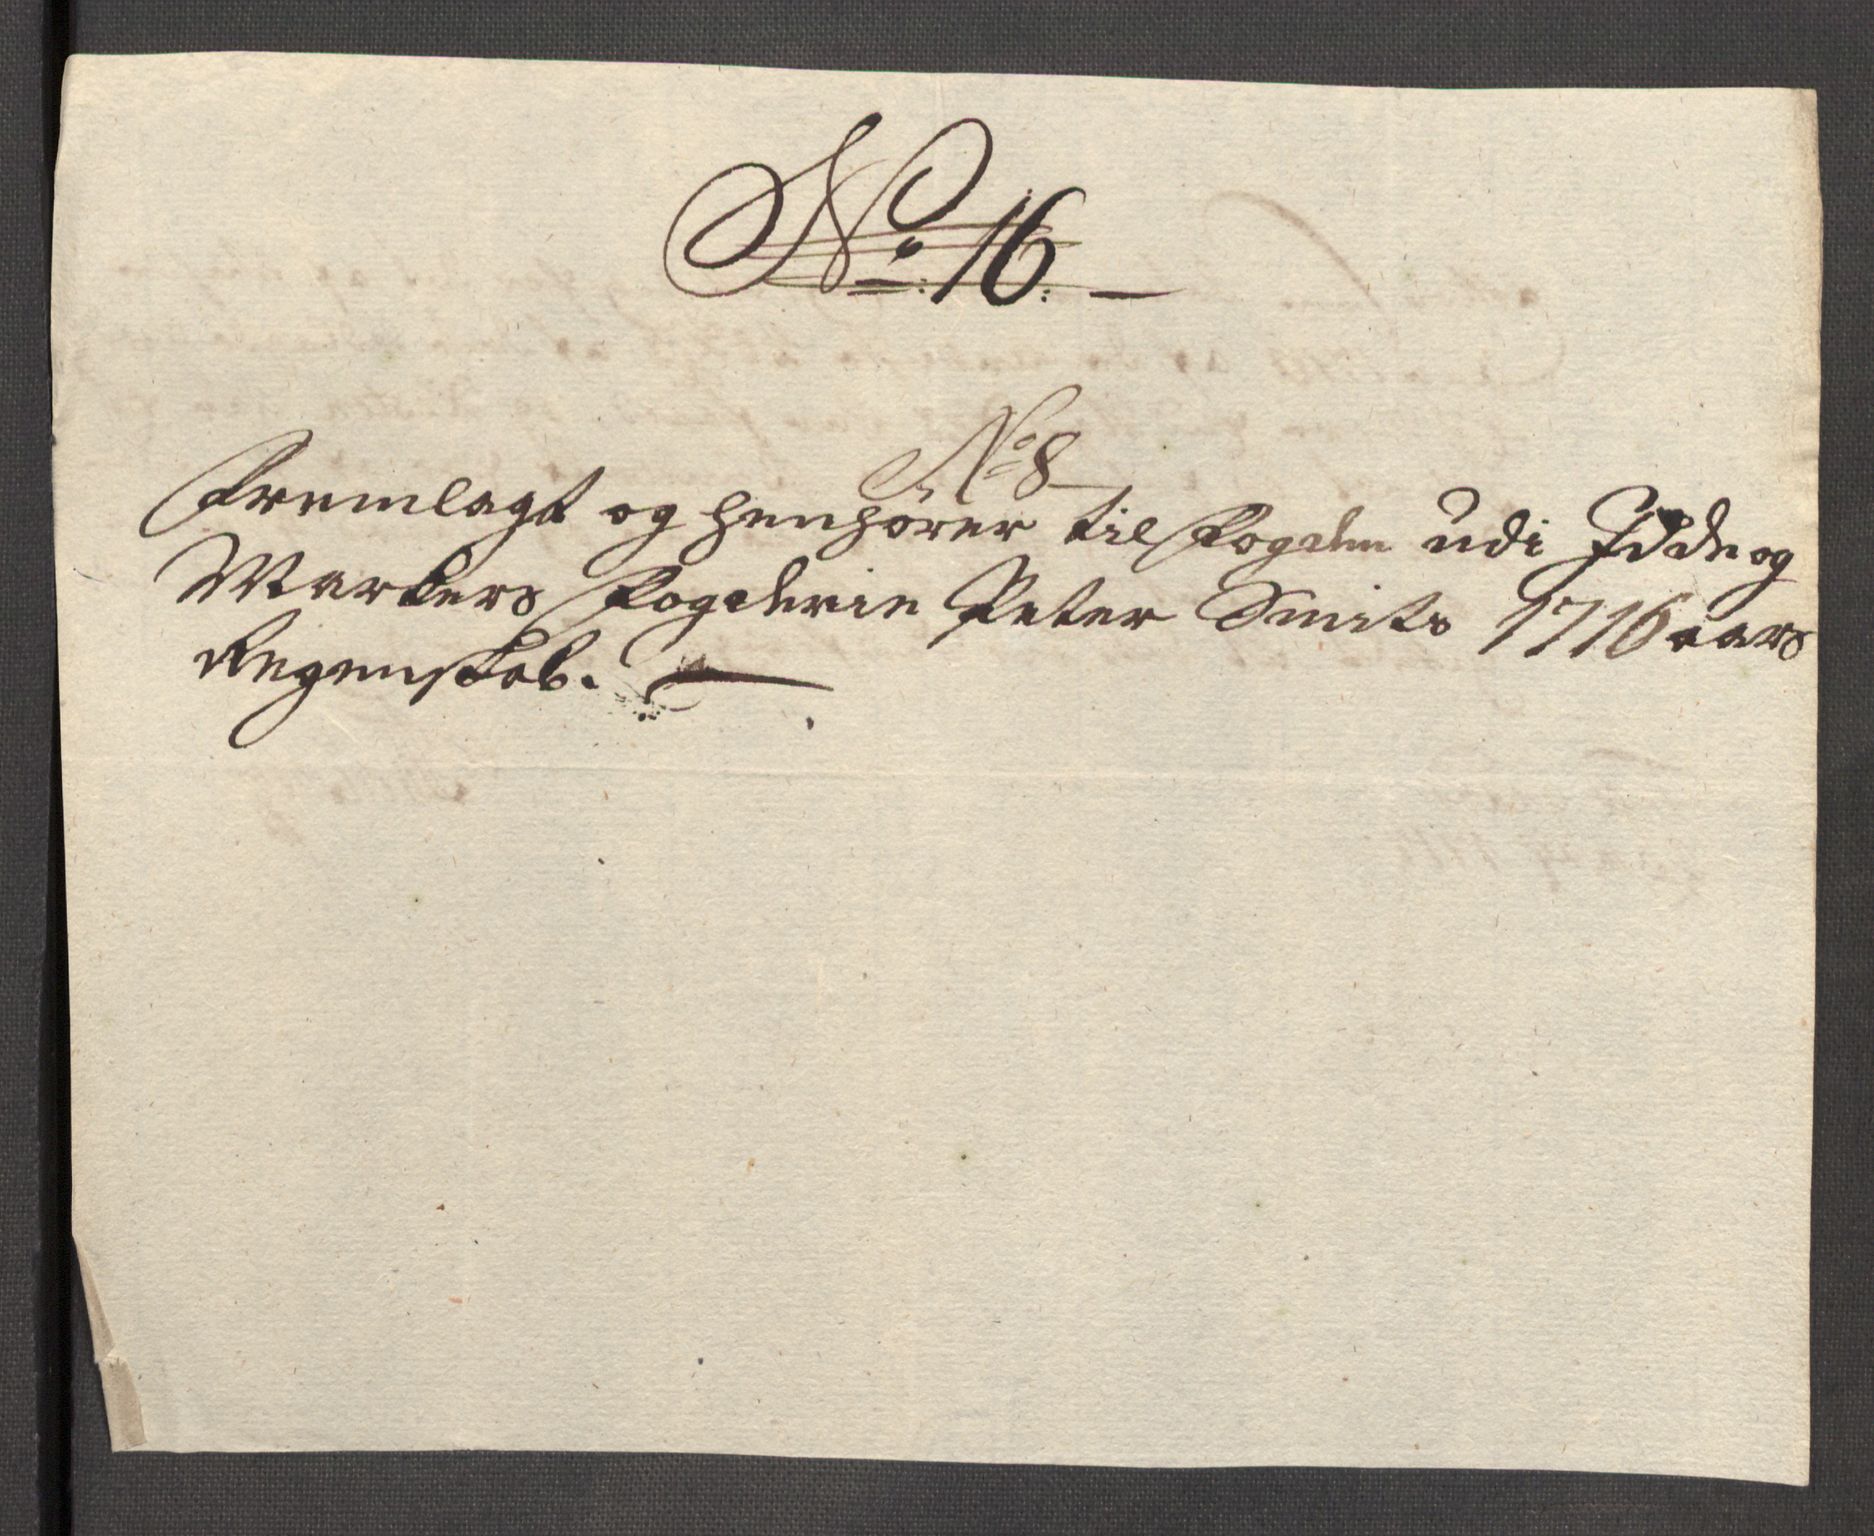 No: 16:
No 8
Fremlagt og henhører til Fogden udi Idde og
Markers Fogderie Peter Smits 1716 aars
Regenskab.